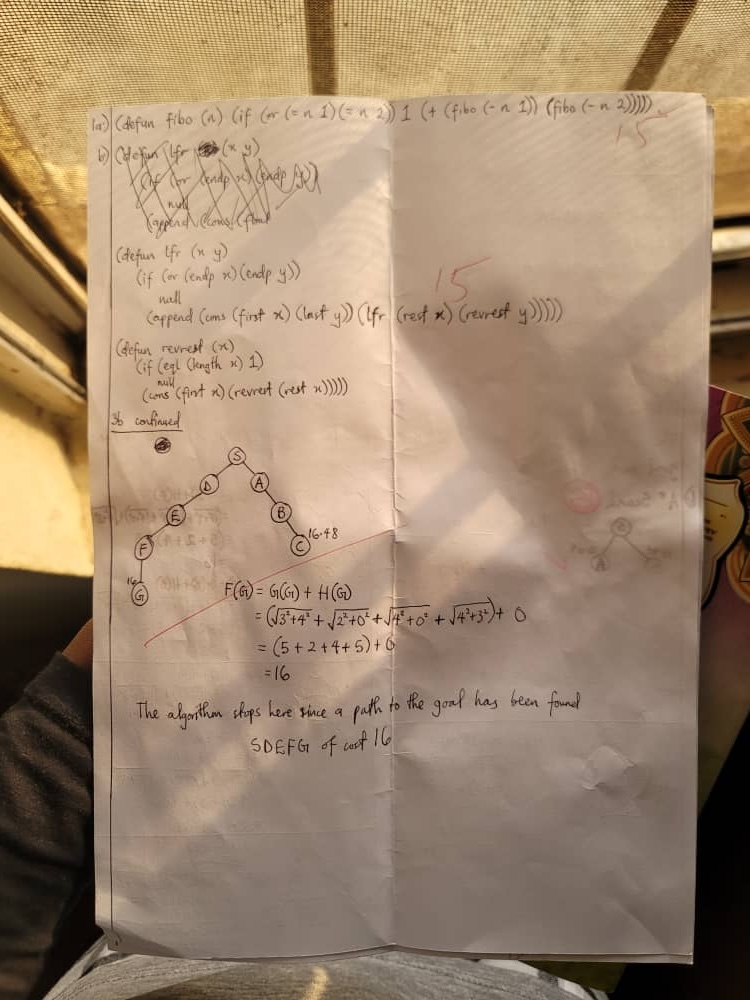 1a) (defun fibo (n) (if (or (= n 1)(= n 2)) 1 (+ (fibo (- n 1)) (fibo (- n 2)))))
15
b) (defun lfr (x y)
(if (or (endp x) (endp y))
null
(append (cons (first
(defun lfr (x y)
(if (or (endp x)(endp y))
null
15
(append (cons (first x) (last y)) (lfr (rest x) (revrest y)))))
(defun revrest (x)
(if (eql (length x) 1)
null
(cons (first x) (revrest (rest x)))))
3b continued
S
D A
E B
F C 16.48
16
G
F(G) = G(G) + H(G)
= (√3²+4² + √2²+0² + √4²+0² + √4²+3²) + 0
= (5 + 2 + 4 + 5) + 0
= 16
The algorithm stops here since a path to the goal has been found
SDEFG of cost 16